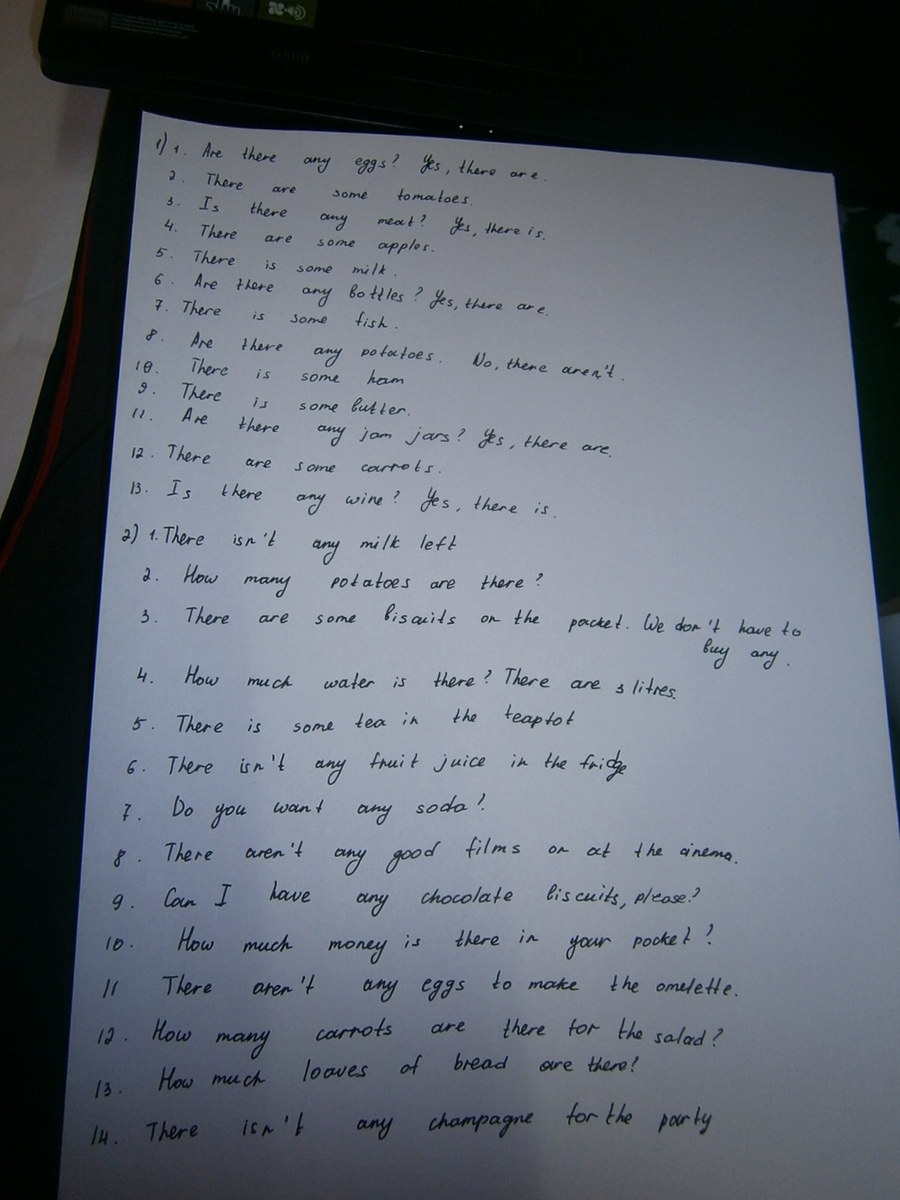 G500
1) 1. Are there any eggs? Yes, there are.
2. There are some tomatoes.
3. Is there any meat? Yes, there is.
4. There are some apples.
5. There is some milk.
6. Are there any bottles? Yes, there are.
7. There is some fish.
8. Are there any potatoes. No, there aren't.
10. There is some ham
9. There is some butter.
11. Are there any jam jars? Yes, there are.
12. There are some carrots.
13. Is there any wine? Yes, there is.
2) 1. There isn't any milk left
2. How many potatoes are there?
3. There are some biscuits on the packet. We don't have to
buy any.
4. How much water is there? There are 3 litres.
5. There is some tea in the teaptot
6. There isn't any fruit juice in the fridge
7. Do you want any soda?
8. There aren't any good films on at the cinema.
9. Can I have any chocolate biscuits, please?
10. How much money is there in your pocket?
11 There aren't any eggs to make the omelette.
12. How many carrots are there for the salad?
13. How much loaves of bread are there?
14. There isn't any champagne for the party